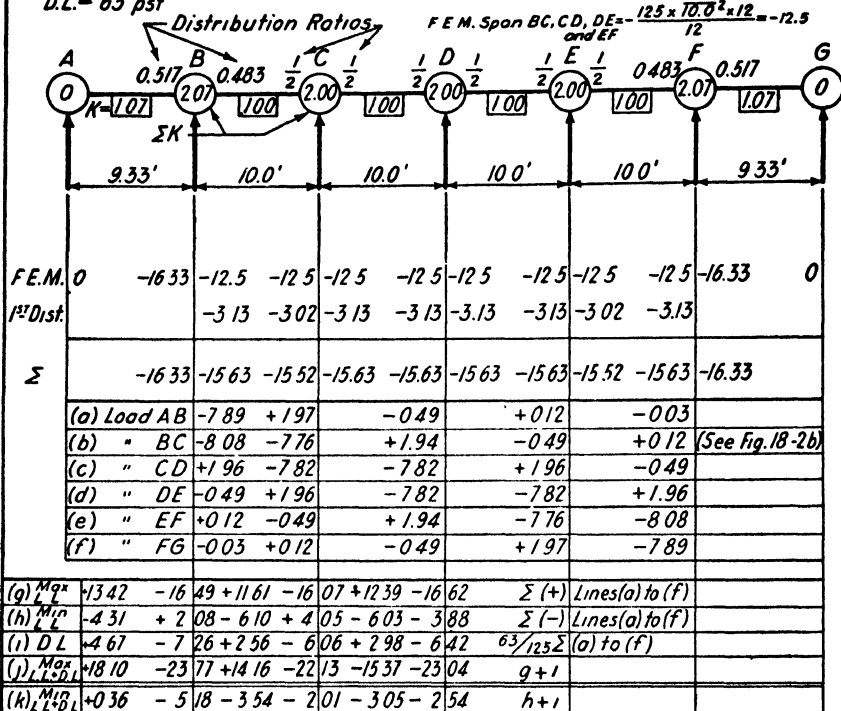 D.L.= 63 psf
Distribution Ratios
F E M. Span BC, CD, DE=- 125 x 10.0² x 12 / 12 = -12.5
and EF
A B C D E F G
0.517 0.483 1/2 1/2 1/2 1/2 1/2 1/2 0483 0.517
0 2.07 2.00 2 00 2.00 2.07 0
K= 1.07 1.00 1 00 1 00 1 00 1.07
ΣK
9.33' 10.0' 10.0' 10 0' 10 0' 9 33'
F E.M. 0 -16 33 -12.5 -12 5 -12 5 -12 5 -12 5 -12 5 -12 5 -12 5 -16.33 0
1ST Dist. -3 13 -3 02 -3 13 -3 13 -3.13 -3 13 -3 02 -3.13
Σ -16 33 -15 63 -15 52 -15.63 -15.63 -15 63 -15 63 -15.52 -15 63 -16.33
(a) Load AB -7 89 +1 97 -0 49 +0 12 -0 03
(b) " BC -8 08 -7 76 +1.94 -0 49 +0 12 (See Fig. 18-2b)
(c) " CD +1 96 -7 82 -7 82 +1 96 -0 49
(d) " DE -0 49 +1 96 -7 82 -7 82 +1.96
(e) " EF +0 12 -0 49 +1.94 -7 76 -8 08
(f) " FG -0 03 +0 12 -0 49 +1 97 -7 89
(g) Max LL +13 42 -16 49 +11 61 -16 07 +12 39 -16 62 Σ (+) Lines (a) to (f)
(h) Min LL -4 31 + 2 08 - 6 10 + 4 05 - 6 03 - 3 88 Σ (-) Lines (a) to (f)
(i) D L +4 67 - 7 26 + 2 56 - 6 06 + 2 98 - 6 42 63/125 Σ (a) to (f)
(j) Max LL+DL +18 10 -23 77 +14 16 -22 13 -15 37 -23 04 g + i
(k) Min LL+DL +0 36 - 5 18 - 3 54 - 2 01 - 3 05 - 2 54 h + i